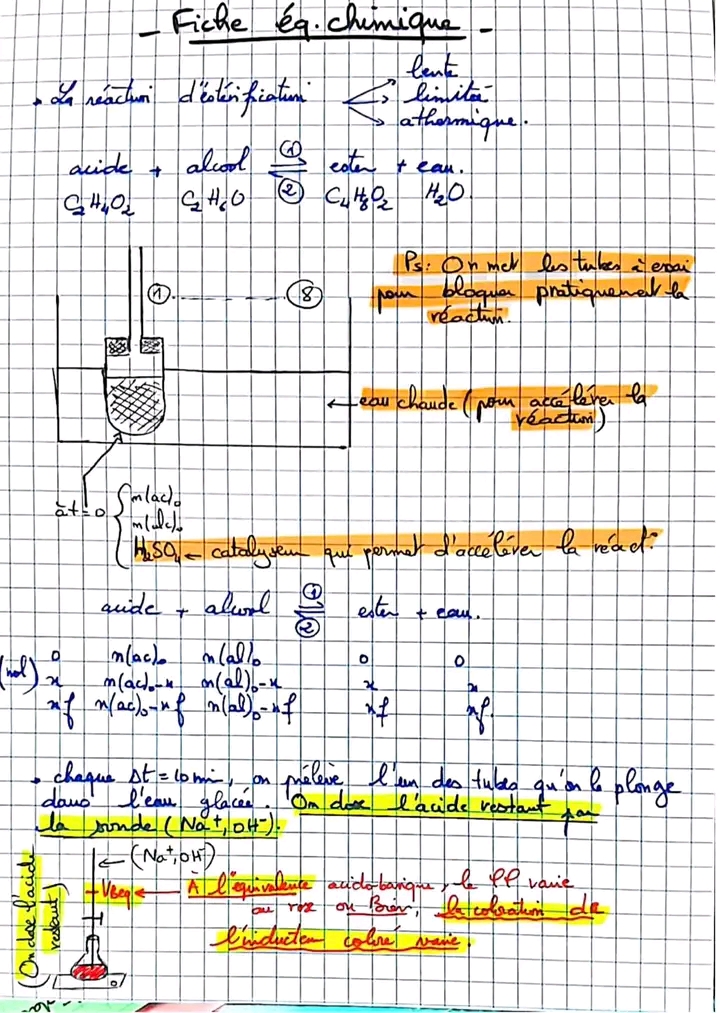 - Fiche éq. chimique -
• La réaction d'estérification
lente
limitée
athermique.
acide + alcool ⇌ ester + eau.
① ②
C2H4O2 C2H6O C4H8O2 H2O
Ps: On met les tubes à essai
pour bloquer pratiquement la
réaction.
① -------- ⑧
← eau chaude (pour accélérer la
réaction)
à t=0
n(ac)₀
n(alc)₀
H2SO4 ← catalyseur qui permet d'accélérer la réact°
acide + alcool ⇌ ester + eau.
① ②
(mol) 0 n(ac)₀ n(al)₀ 0 0
x n(ac)₀-x n(al)₀-x x x
xf n(ac)₀-xf n(al)₀-xf xf xf.
• chaque Δt = 10 min, on prélève l'un des tubes qu'on le plonge
dans l'eau glacée. On dose l'acide restant par
la soude (Na⁺, OH⁻).
← (Na⁺, OH⁻)
(On dose l'acide
restant)
VBeq ← À l'équivalence acido-basique, le PP varie
au rose ou, la coloration de
l'inducteur coloré varie.